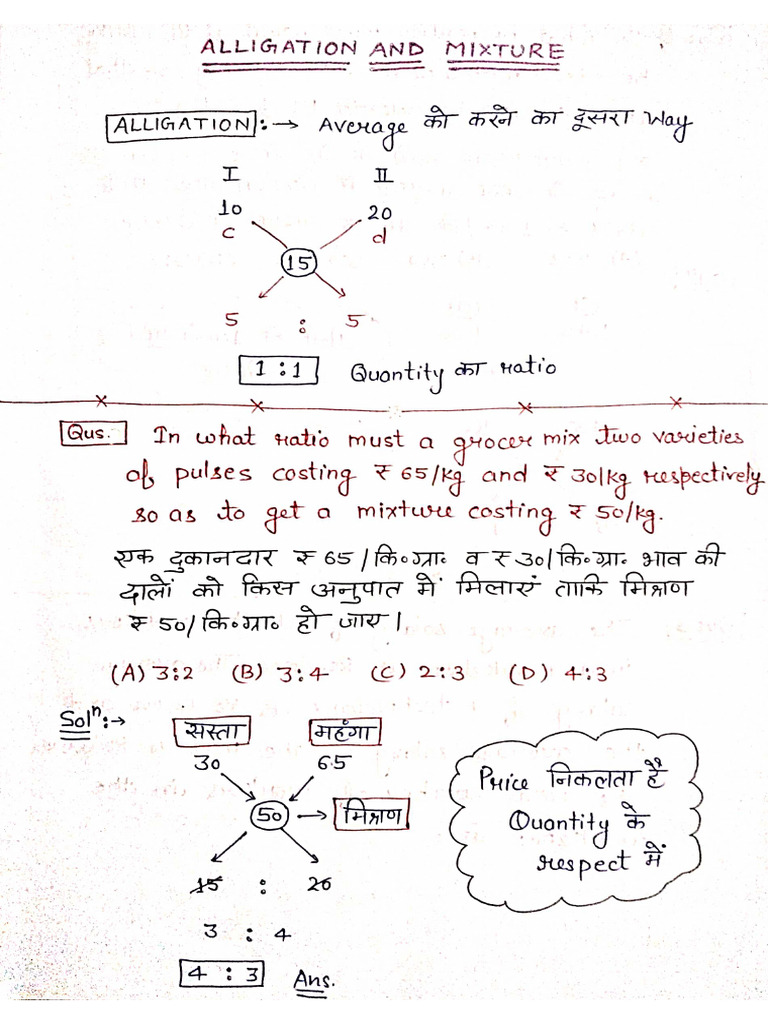 ALLIGATION AND MIXTURE
ALLIGATION :→ Average को करने का दूसरा Way
I II
10 20
c d
15
5 : 5
1 : 1 Quantity का ratio
Qus. In what ratio must a grocer mix two varieties
of pulses costing ₹ 65/kg and ₹ 30/kg respectively
so as to get a mixture costing ₹ 50/kg.
एक दुकानदार ₹ 65/कि॰ग्रा॰ व ₹ 30/कि॰ग्रा॰ भाव की
दालों को किस अनुपात में मिलाएं ताकि मिश्रण
₹ 50/कि॰ग्रा॰ हो जाए।
(A) 3:2 (B) 3:4 (C) 2:3 (D) 4:3
Solⁿ:→ सस्ता महंगा
30 65
50 → मिश्रण
15 : 20
3 : 4
4 : 3 Ans.
Price निकलता है
Quantity के
respect में